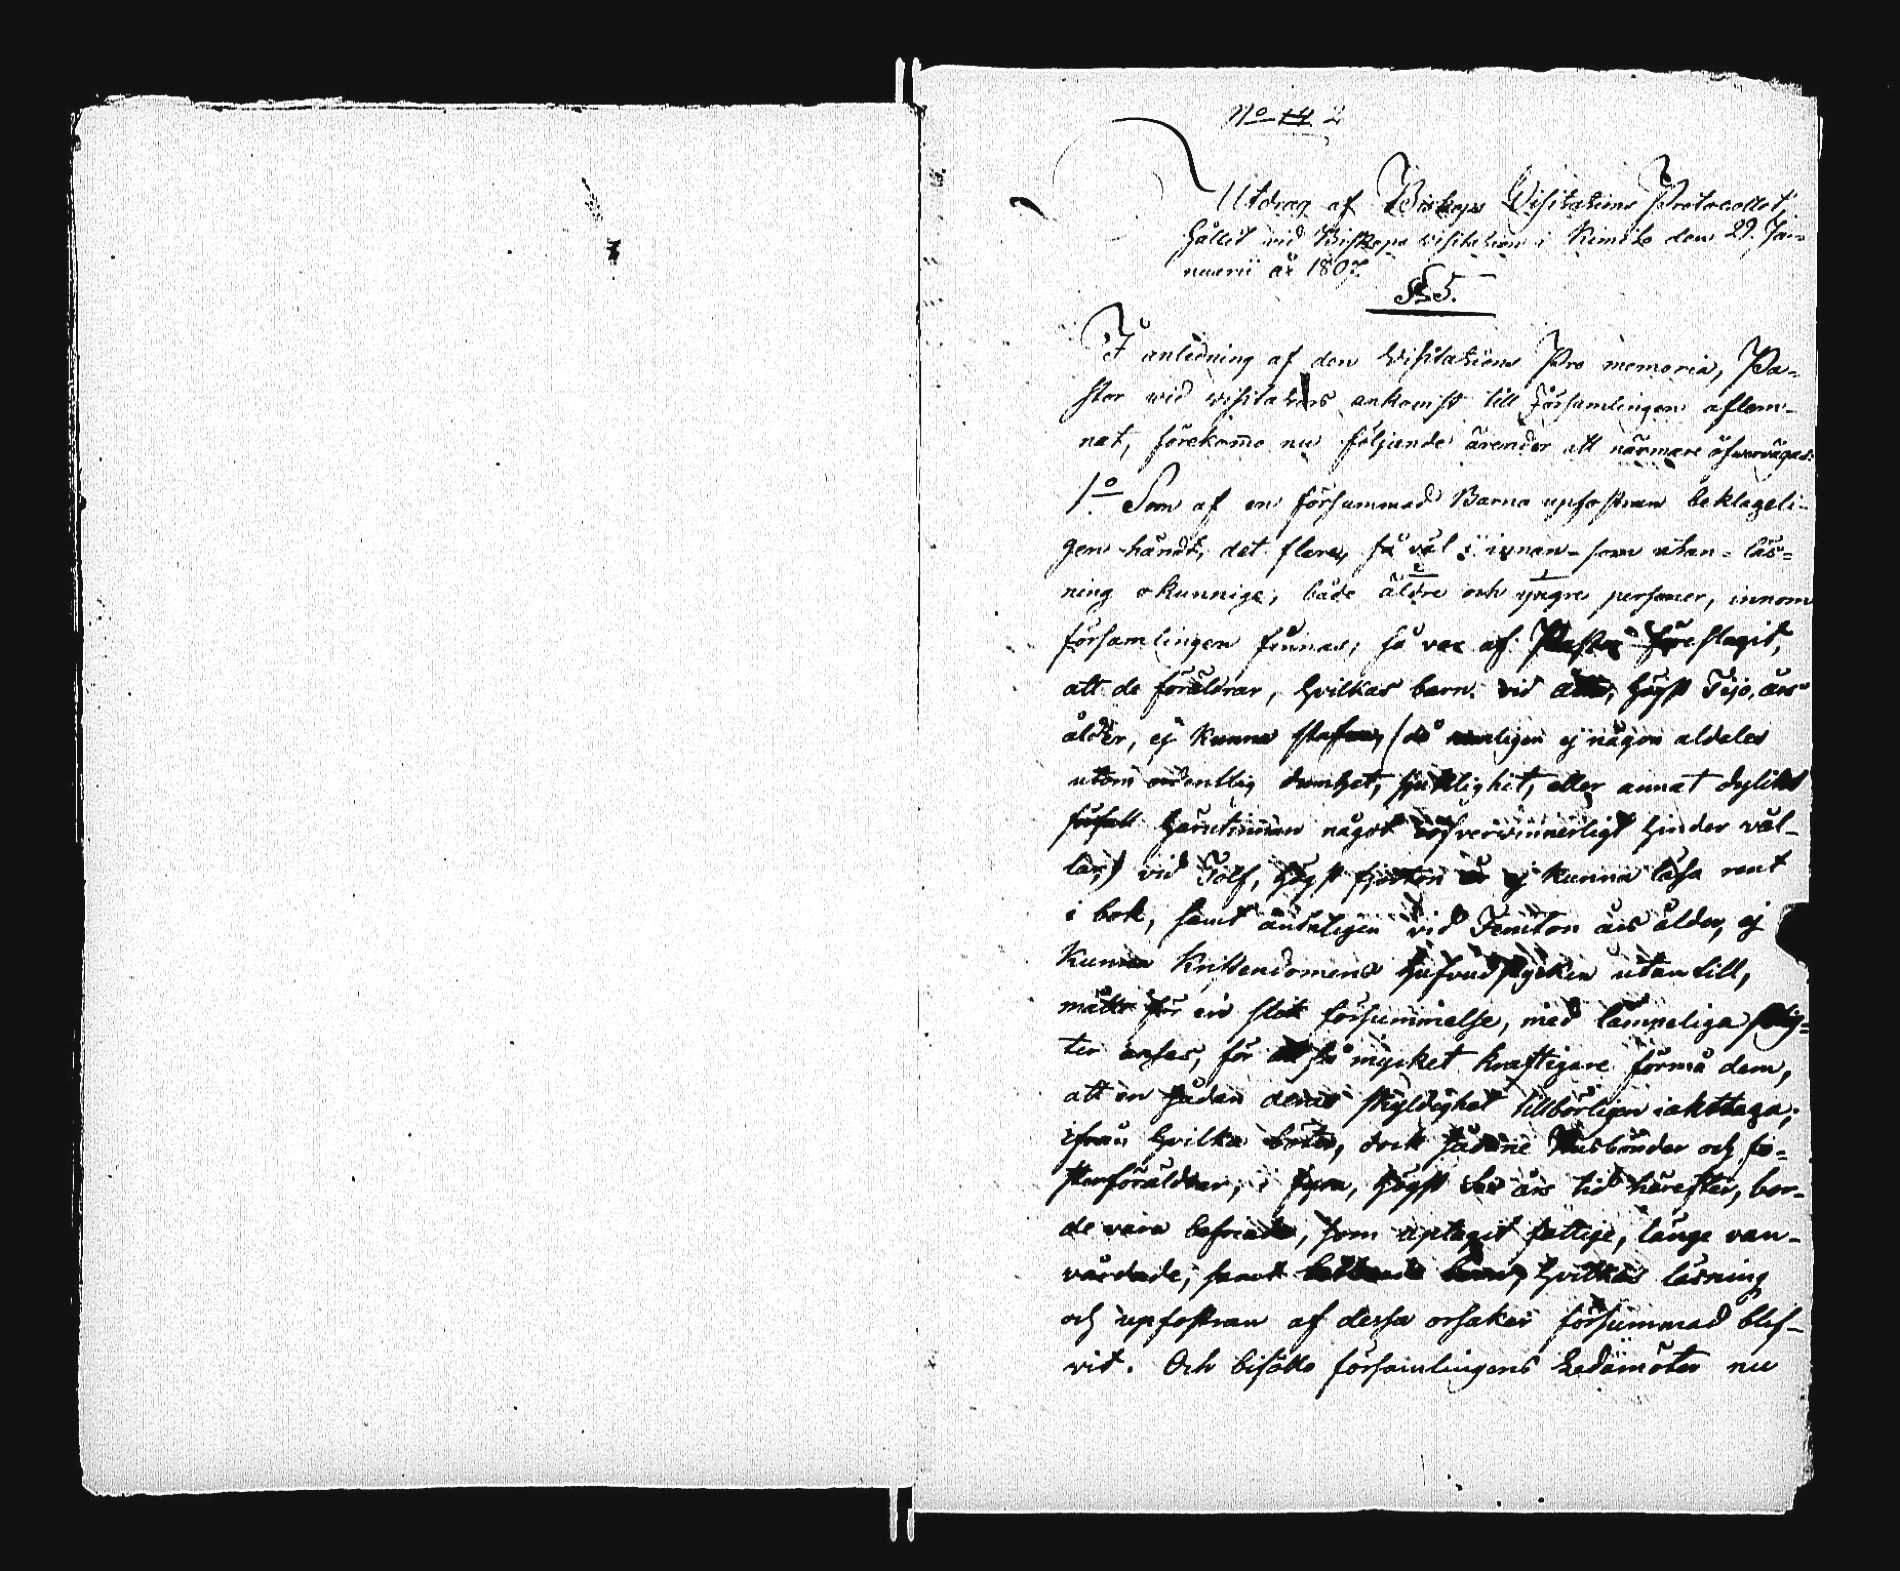 No 14 2
Utdrag af Biskops Visitations Protocollet
hållit vid Biskops visitation i Kimito den 29. Ja-
nuarii år 1807
§ 5.
I anledning af den Visitations Pro memoria, Pa-
stor wid visitators ankomst till Församlingen aflem-
nat, förekomo nu följande ärender att närmare öfwervägas:
1o Som af en försummad Barna upfostran beklageli-
gen händt, det flere, så väl i innan- som utan- läs-
ning okunnige, både äldre och yngre personer, innom
församlingen finnas; så var af Pastor föreslagit,
att de föräldrar, hvilkas barn vid åtta, högst Tijo, års
ålder, ej kunna stafva, (då nemligen ej någon aldeles
utom ordentlig dumhet, sjuklighet, eller annat dylikt
förfall härutinnan något oöfvervinnerligt hinder vål-
lar,) vid Tolf, högst fjorton år ej kunna läsa rent
i bok, samt ändteligen vid Femton års ålder, ej
kunna Kristendomens hufvudstycken utan till,
måtte för en slik försummelse, med lämpeliga plig-
ter anses, för att så mycket kraftigare förmå dem,
att en sådan deras skyldighet tillbörligen iakttaga;
ifrån hvilka böter, dock sådane Husbönder och fo-
sterföräldrar, i fyra, högst sex års tid härefter, bor-
de vara befriade, som uptagit fattige, länge van-
vårdade, samt barn, hvilkas läsning
och upfostran af dessa orsaker försummad blif-
vit. Och biföllo församlingens Ledamöter nu